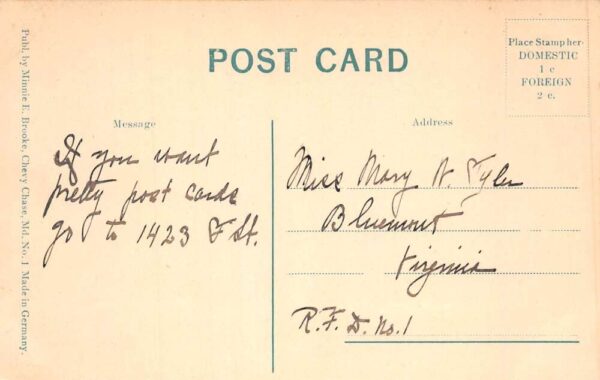 POST CARD
Place Stamp her-
DOMESTIC
1 c
FOREIGN
2 c.
Message
Address
If you want
pretty post cards
go to 1423 F St.
Miss Mary N. Tyler
Bluemont
Virginia
R.F.D. No. 1
Publ. by Minnie E. Brooke, Chevy Chase, Md. No. 1 Made in Germany.